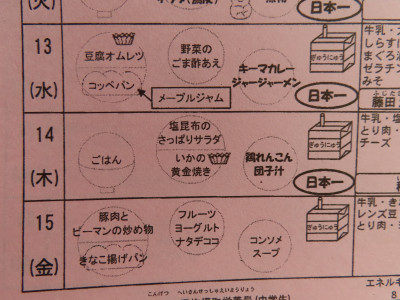 (火)
日本一
13
(水)
豆腐オムレツ
コッペパン
野菜の
ごま酢あえ
メープルジャム
キーマカレー
ジャージャーメン
ぎゅうにゅう
日本一
牛乳・
しらす
まぐろ
ゼラチン
みそ
ふじと
藤田
14
(木)
ごはん
塩昆布の
さっぱりサラダ
いかの
黄金焼き
鶏れんこん
団子汁
ぎゅうにゅう
日本一
牛乳・塩
とり肉・
チーズ
15
(金)
豚肉と
ピーマンの炒め物
きなこ揚げパン
フルーツ
ヨーグルト
ナタデココ
コンソメ
スープ
ぎゅうにゅう
牛乳・き
レンズ豆
とり肉・
こんげつ へいきんせっしゅえいようりょう
(中学生)
エネルギ
8